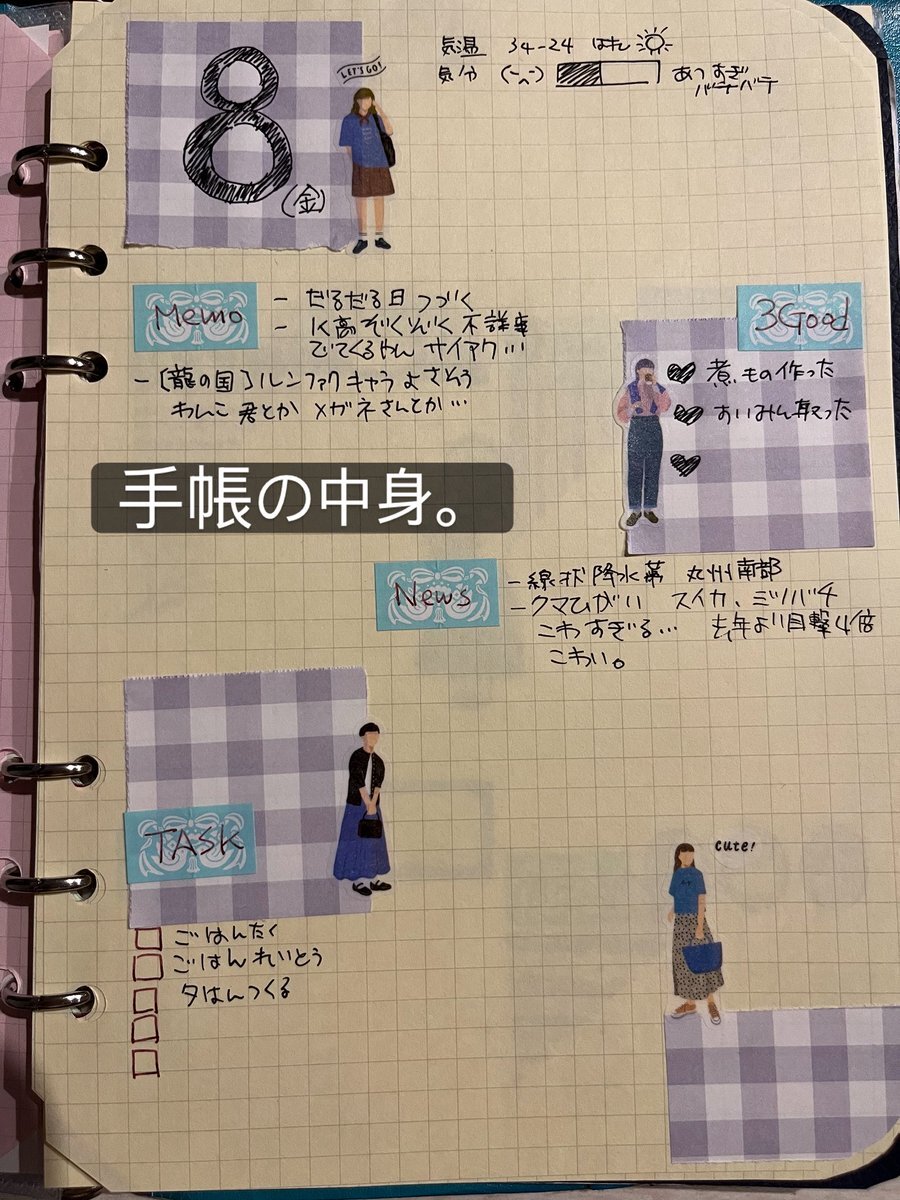 8
(金)
LET'S GO!
気温 34-24 はれ
気分 (-^-) あつすぎ
バテバテ
Memo
- だるだる日つづく
- 高ぞくぞく不詳車
でてくるやん サイアク…
- [龍の国]ルンファクキャラよさそう
わんこ君とか メガネさんとか…
3Good
煮もの作った
あいみん取った
手帳の中身。
News
- 線状降水帯 九州南部
- クマひがい スイカ、ミツバチ
こわすぎる… 去年より目撃4倍
こわい。
TASK
ごはんたく
ごはんれいとう
夕はんつくる
cute!